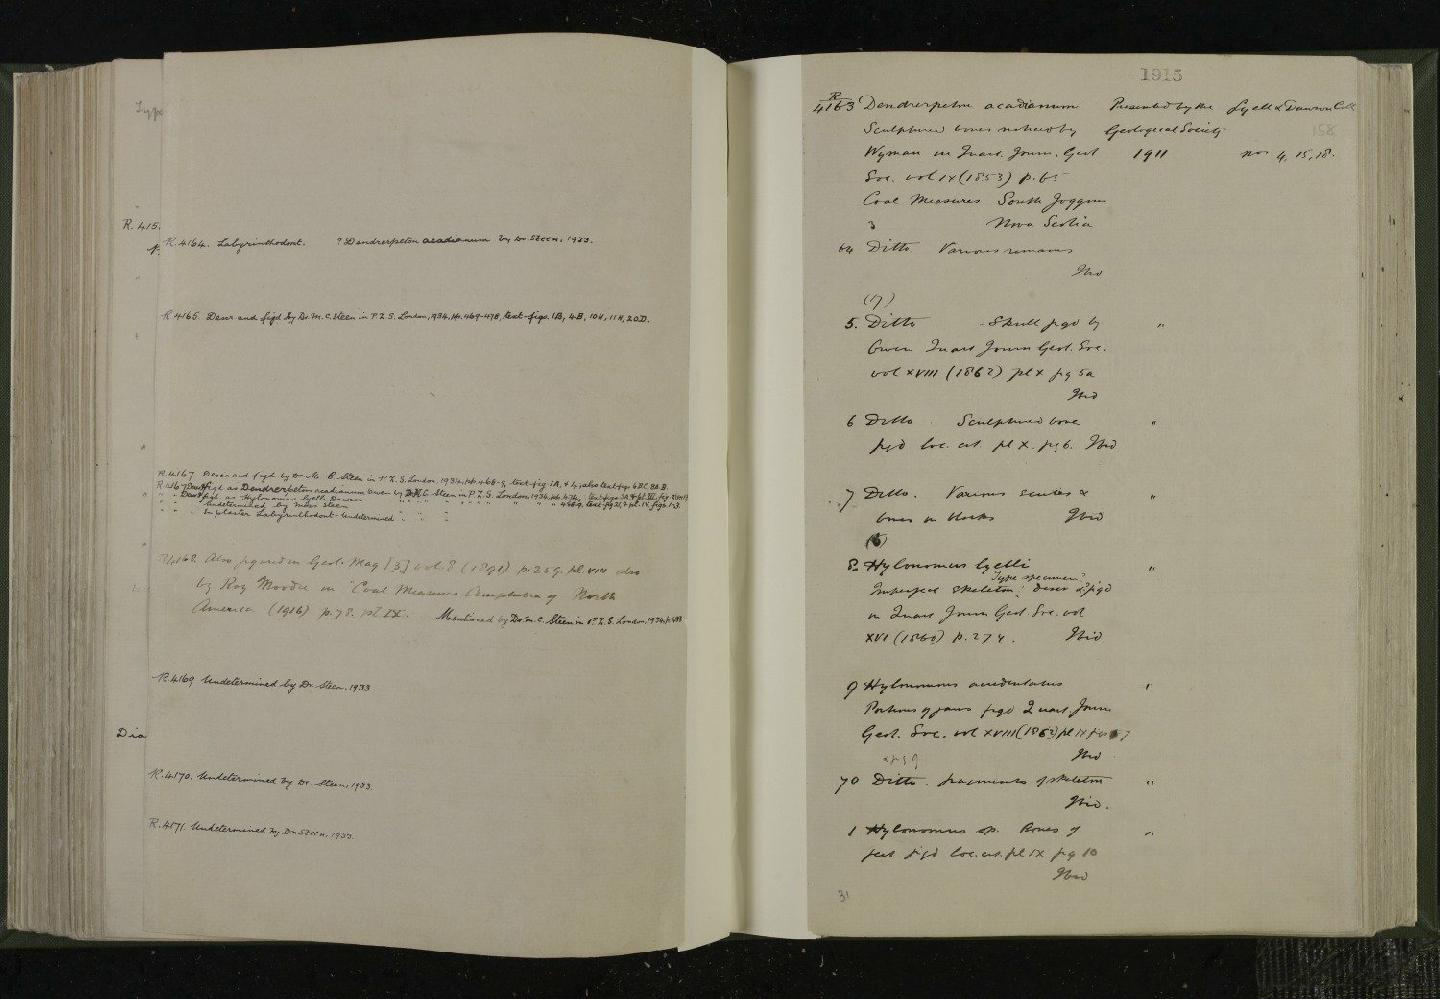 Type
R. 415
R. 4164. Labyrinthodont. ? Dendrerpeton acadianum by Dr. Steen, 1933.
R. 4165. Descr and figd by Dr. M. C. Steen in P.Z.S. London, 1934, pp. 469-478, text-figs. 1B, 4B, 10H, 11H, 20D.
R. 4167. Descr and figd by Dr M. C. Steen in P.Z.S. London, 1934, pp. 466-9, text-fig 1A, & 4, also text-figs 6B.C. 8A.B.
R. 4167 figd as Dendrerpeton acadianum Owen by M.C. Steen in P.Z.S. London, 1934, pp. 474,
figd as Hylonomus lyelli Dawson
Undetermined by Miss Steen
In plaster Labyrinthodont - Undetermined
R. 4168. Also figured in Geol. Mag [3] vol. 8 (1891) p. 259. pl. VIII also
by Roy Moodie in "Coal Measures Amphibia of North
America (1916) p. 78. pl IX. Mentioned by Dr. M. C. Steen in P.Z.S. London, 1934, p.
R. 4169 Undetermined by Dr. Steen, 1933
Dia
R. 4170. Undetermined by Dr. Steen, 1933.
R. 4171. Undetermined by Dr Steen, 1933.
1915
R 4163 Dendrerpeton acadianum Presented by the Lyell & Dawson Coll
Sculptured bones noticed by Geological Society 158
Wyman in Quart. Journ. Geol 1911 nos 4, 15, 18.
Soc. vol IX (1853) p. 65
Coal Measures South Joggins
3 Nova Scotia
64 Ditto Various remains
Ibid
(17)
5. Ditto Skull figd by "
Owen Quart Journ Geol. Soc.
vol XVIII (1862) pl X fig 5a
Ibid
6 Ditto. Sculptured bone "
figd loc. cit. pl X. fig 6. Ibid
7 Ditto. Various scutes & "
bones in blocks Ibid
(6)
8. Hylonomus lyelli "
Type specimen?
Imperfect skeleton, descr & figd
in Quart Journ Geol. Soc. vol
XVI (1860) p. 274. Ibid
9 Hylonomus aciedentatus "
Portions of jaws figd Quart. Journ
Geol. Soc. vol XVIII (1862) pl IX
Ibid
70 Ditto. fragments of skeleton "
Ibid.
1 Hylonomus sp. Bones of "
feet figd loc. cit. pl IX fig 10
Ibid
31